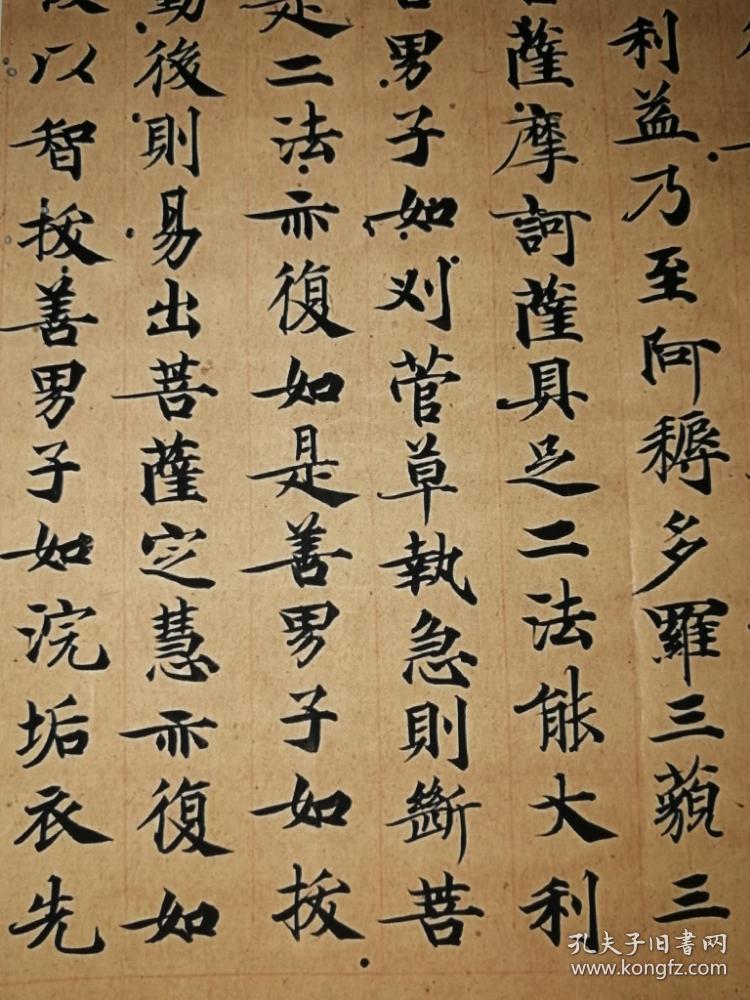 利益乃至阿耨多羅三藐三
菩薩摩訶薩具足二法能大利
善男子如刈菅草執急則斷菩
是二法亦復如是善男子如拔
動後則易出菩薩定慧亦復如
後以智拔善男子如浣垢衣先
孔夫子旧書网
www.kongfz.com